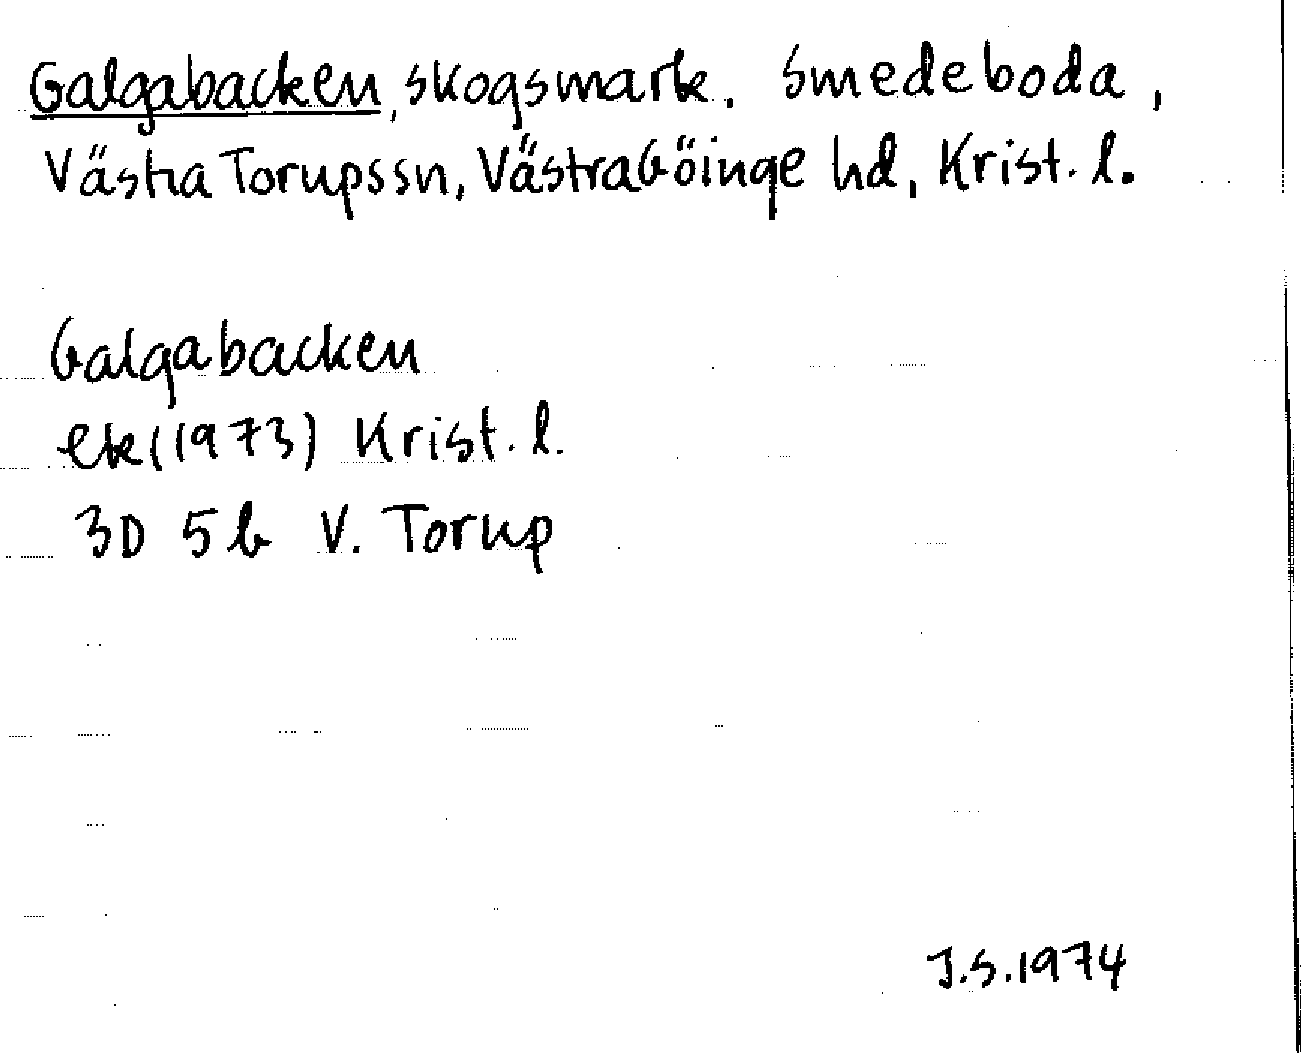 Galgabacken, skogsmark. Smedeboda,
Västra Torups sn, Västra Göinge hd, Krist. l.
Galgabacken
ek (1973) Krist. l.
3D 5b V. Torup
J.S. 1974